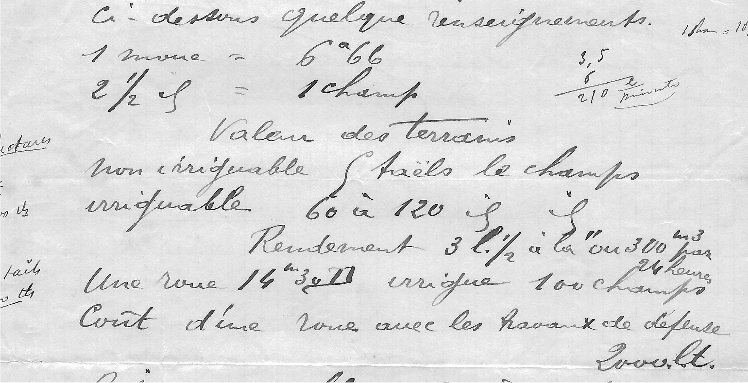 Ci-dessous quelque renseignements.
1 moue = 6ª66
2 1/2 id = 1 champ
3,5
6
210
minute
Valeur des terrains
non irriguable 5 taëls le champs
irriguable 60 à 120 id id
Rendement 3 l. 1/2 à la " ou 300 m3 par
24 heures
Une roue 14 m irrigue 100 champs
Coût d'une roue avec les travaux de défense
2000 Lt.